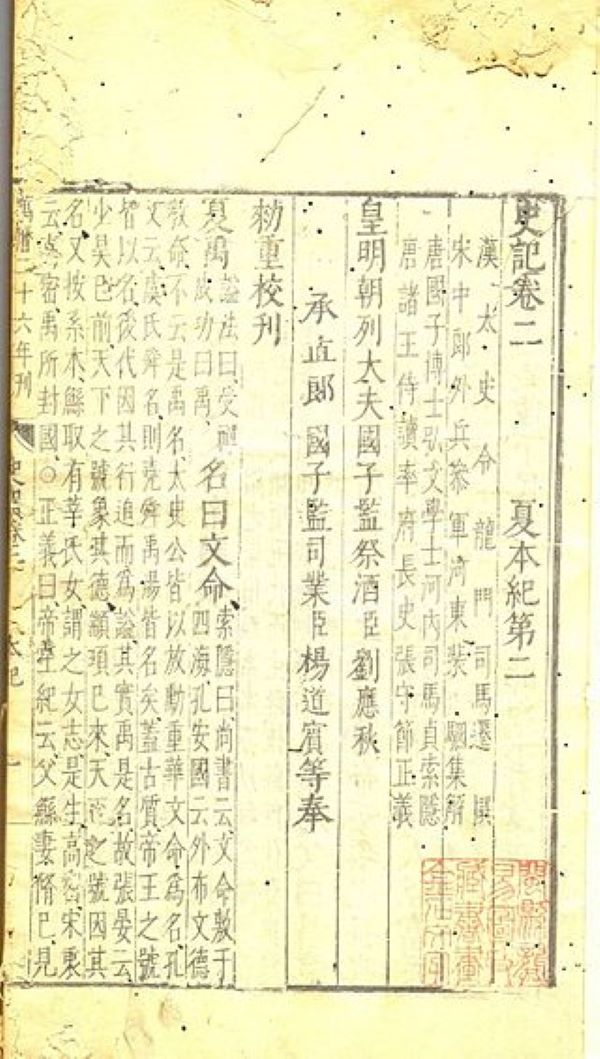 史記卷二 夏本紀第二
漢太史令龍門司馬遷撰
宋中郎外兵參軍河東裴駰集解
唐國子博士弘文學士河內司馬貞索隱
唐諸王侍讀率府長史張守節正義
皇明朝列大夫國子監祭酒臣劉應秋
承直郎國子監司業臣楊道賓等奉
勑重校刊
夏禹 謚法曰受禪成功曰禹 名曰文命 索隱曰尚書云文命敷于四海孔安國云外布文德
教命不云是禹名太史公皆以放勳重華文命爲名孔
文云虞氏舜名則堯舜禹湯皆名矣蓋古質帝王之號
皆以名後代因其行追而爲謚其實禹是名故張晏云
少昊已前天下之號象其德顓頊已來天下之號因其
名又按系本鯀取有莘氏女謂之女志是生高密宋衷
云高密禹所封國○正義曰帝王紀云父鯀妻脩己見
萬曆二十六年刊 史記卷二 本紀 一